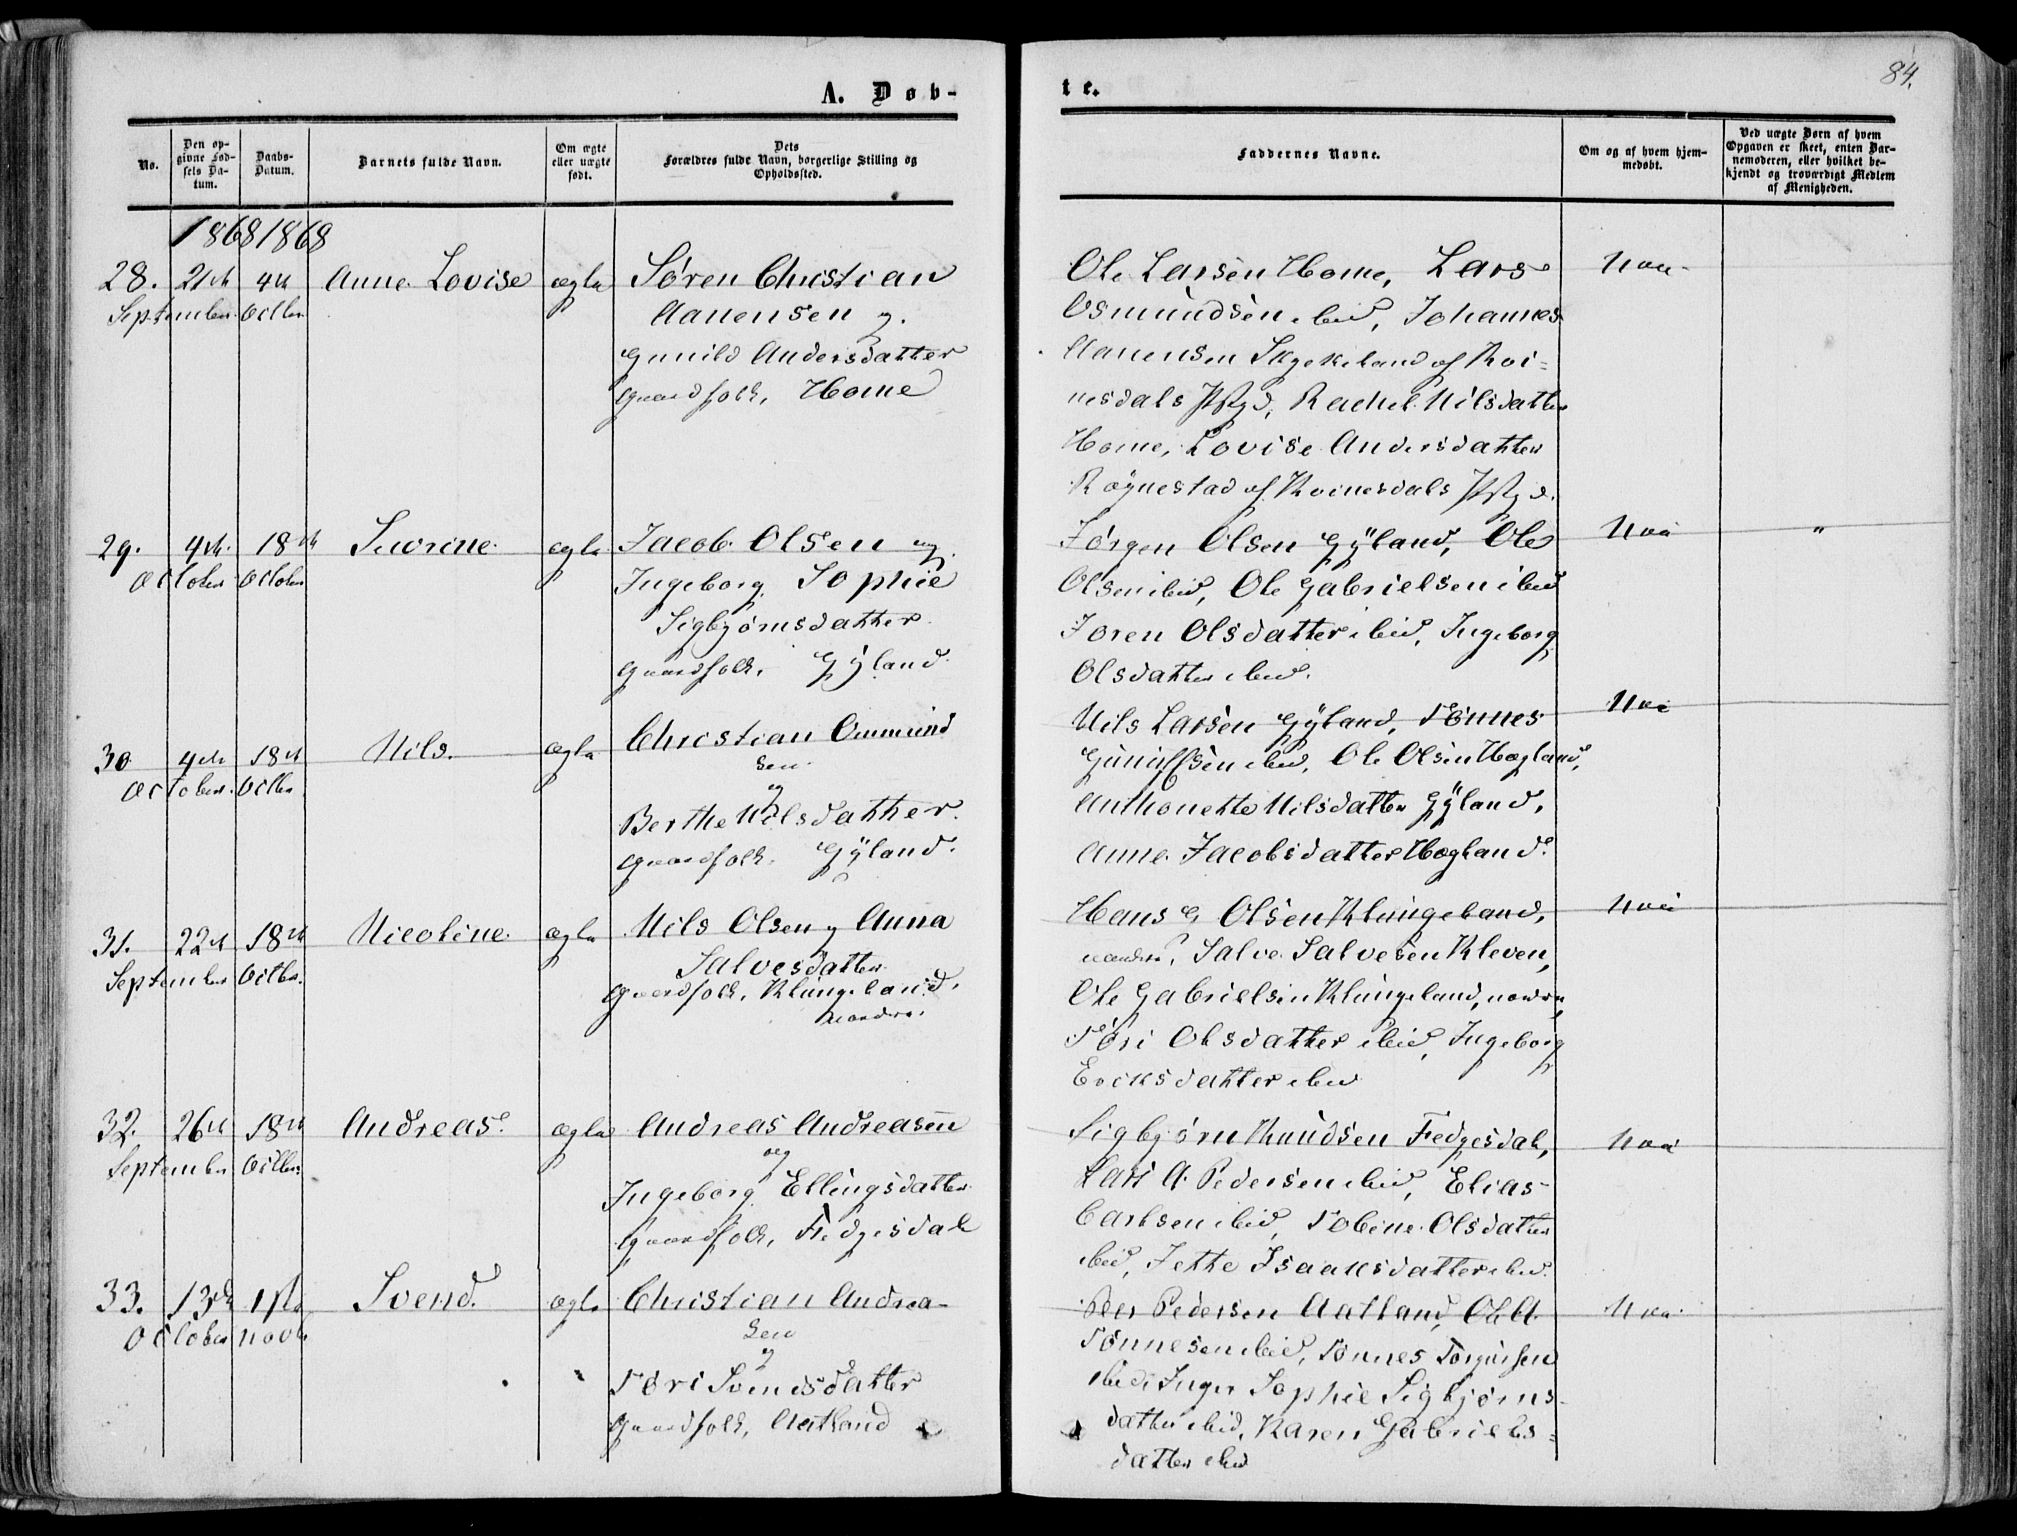 84.
A. Døb-
te.
No.
Den opgivne Fødsels Datum.
Daabs-Datum.
Barnets fulde Navn.
Om ægte eller uægte født.
Dets Forældres fulde Navn, borgerlige Stilling og Opholdssted.
Faddernes Navne.
Om og af hvem hjemmedøbt.
Ved uægte Børn af hvem Opgaven er skeet, enten Barnemoderen, eller hvilket bekjendt og troværdigt Medlem af Menigheden.
1868 1868
28. 21de 4de Anne Lovise ægte Søren Christian
September Octbr
Aanensen og
Gunild Andersdatter
Gaardfolk, Home
Ole Larsen Home, Lars
Osmundsen ibid, Johannes
Aanensen af Kvi=
nesdals Pstgd, Rachel Nilsdatter
Home, Lovise Andersdatter
Røynestad af Kvinesdals Pstgd.
29. 4de 18de Severine ægte Jacob Olsen og
October October
Ingeborg Sophie
Sigbjørnsdatter
Gaardfolk, Gyland
Jørgen Olsen Gyland, Ole
Olsen ibid, Ole Gabrielsen ibid
Joren Olsdatter ibid, Ingeborg
Olsdatter ibid.
"
30 4de 18de Nils. ægte Christian Ommund
October Octbr
sen
og
Berthe Nilsdatter
Gaardfolk, Gyland.
Nils Larsen Gyland, Tønnes
Gunulfsen ibid, Ole Olsen Høgland,
Anthonette Nilsdatter Gyland,
Anne Jacobsdatter Høgland.
31. 22de 18de Nicoline ægte Nils Olsen og Anna
September Octbr.
Salvesdatter
Gaardfolk, Klungeland,
nordre.
Hans G Olsen Klungeland,
nordre, Salve Salvesen Kleven,
Ole Gabrielsen Klungeland, nordre,
Tøri Olsdatter ibid, Ingeborg
Ericksdatter ibid
32. 26de 18de Andreas. ægte Andreas Andreasen
September Octbr.
og
Ingeborg Ellingsdatter
Gaardfolk, Fedgesdal
Sigbjørn Knudsen Fedgesdal,
Lars A. Pedersen ibid, Elias
Carlsen ibid, Tobine Olsdatter
ibid, Jette Isaaksdatter ibid.
33. 13de 1ste Svend. ægte Christian Andrea-
October Novbr
sen
og
Tøri Svendsdatter
Gaardfolk, Aatland
Peer Pedersen Aatland, Ole A.
Tønnesen ibid, Tønnes Torgiersen
ibid, Inger Sophie Sigbjørns-
datter ibid, Karen Gabriels=
datter ibid